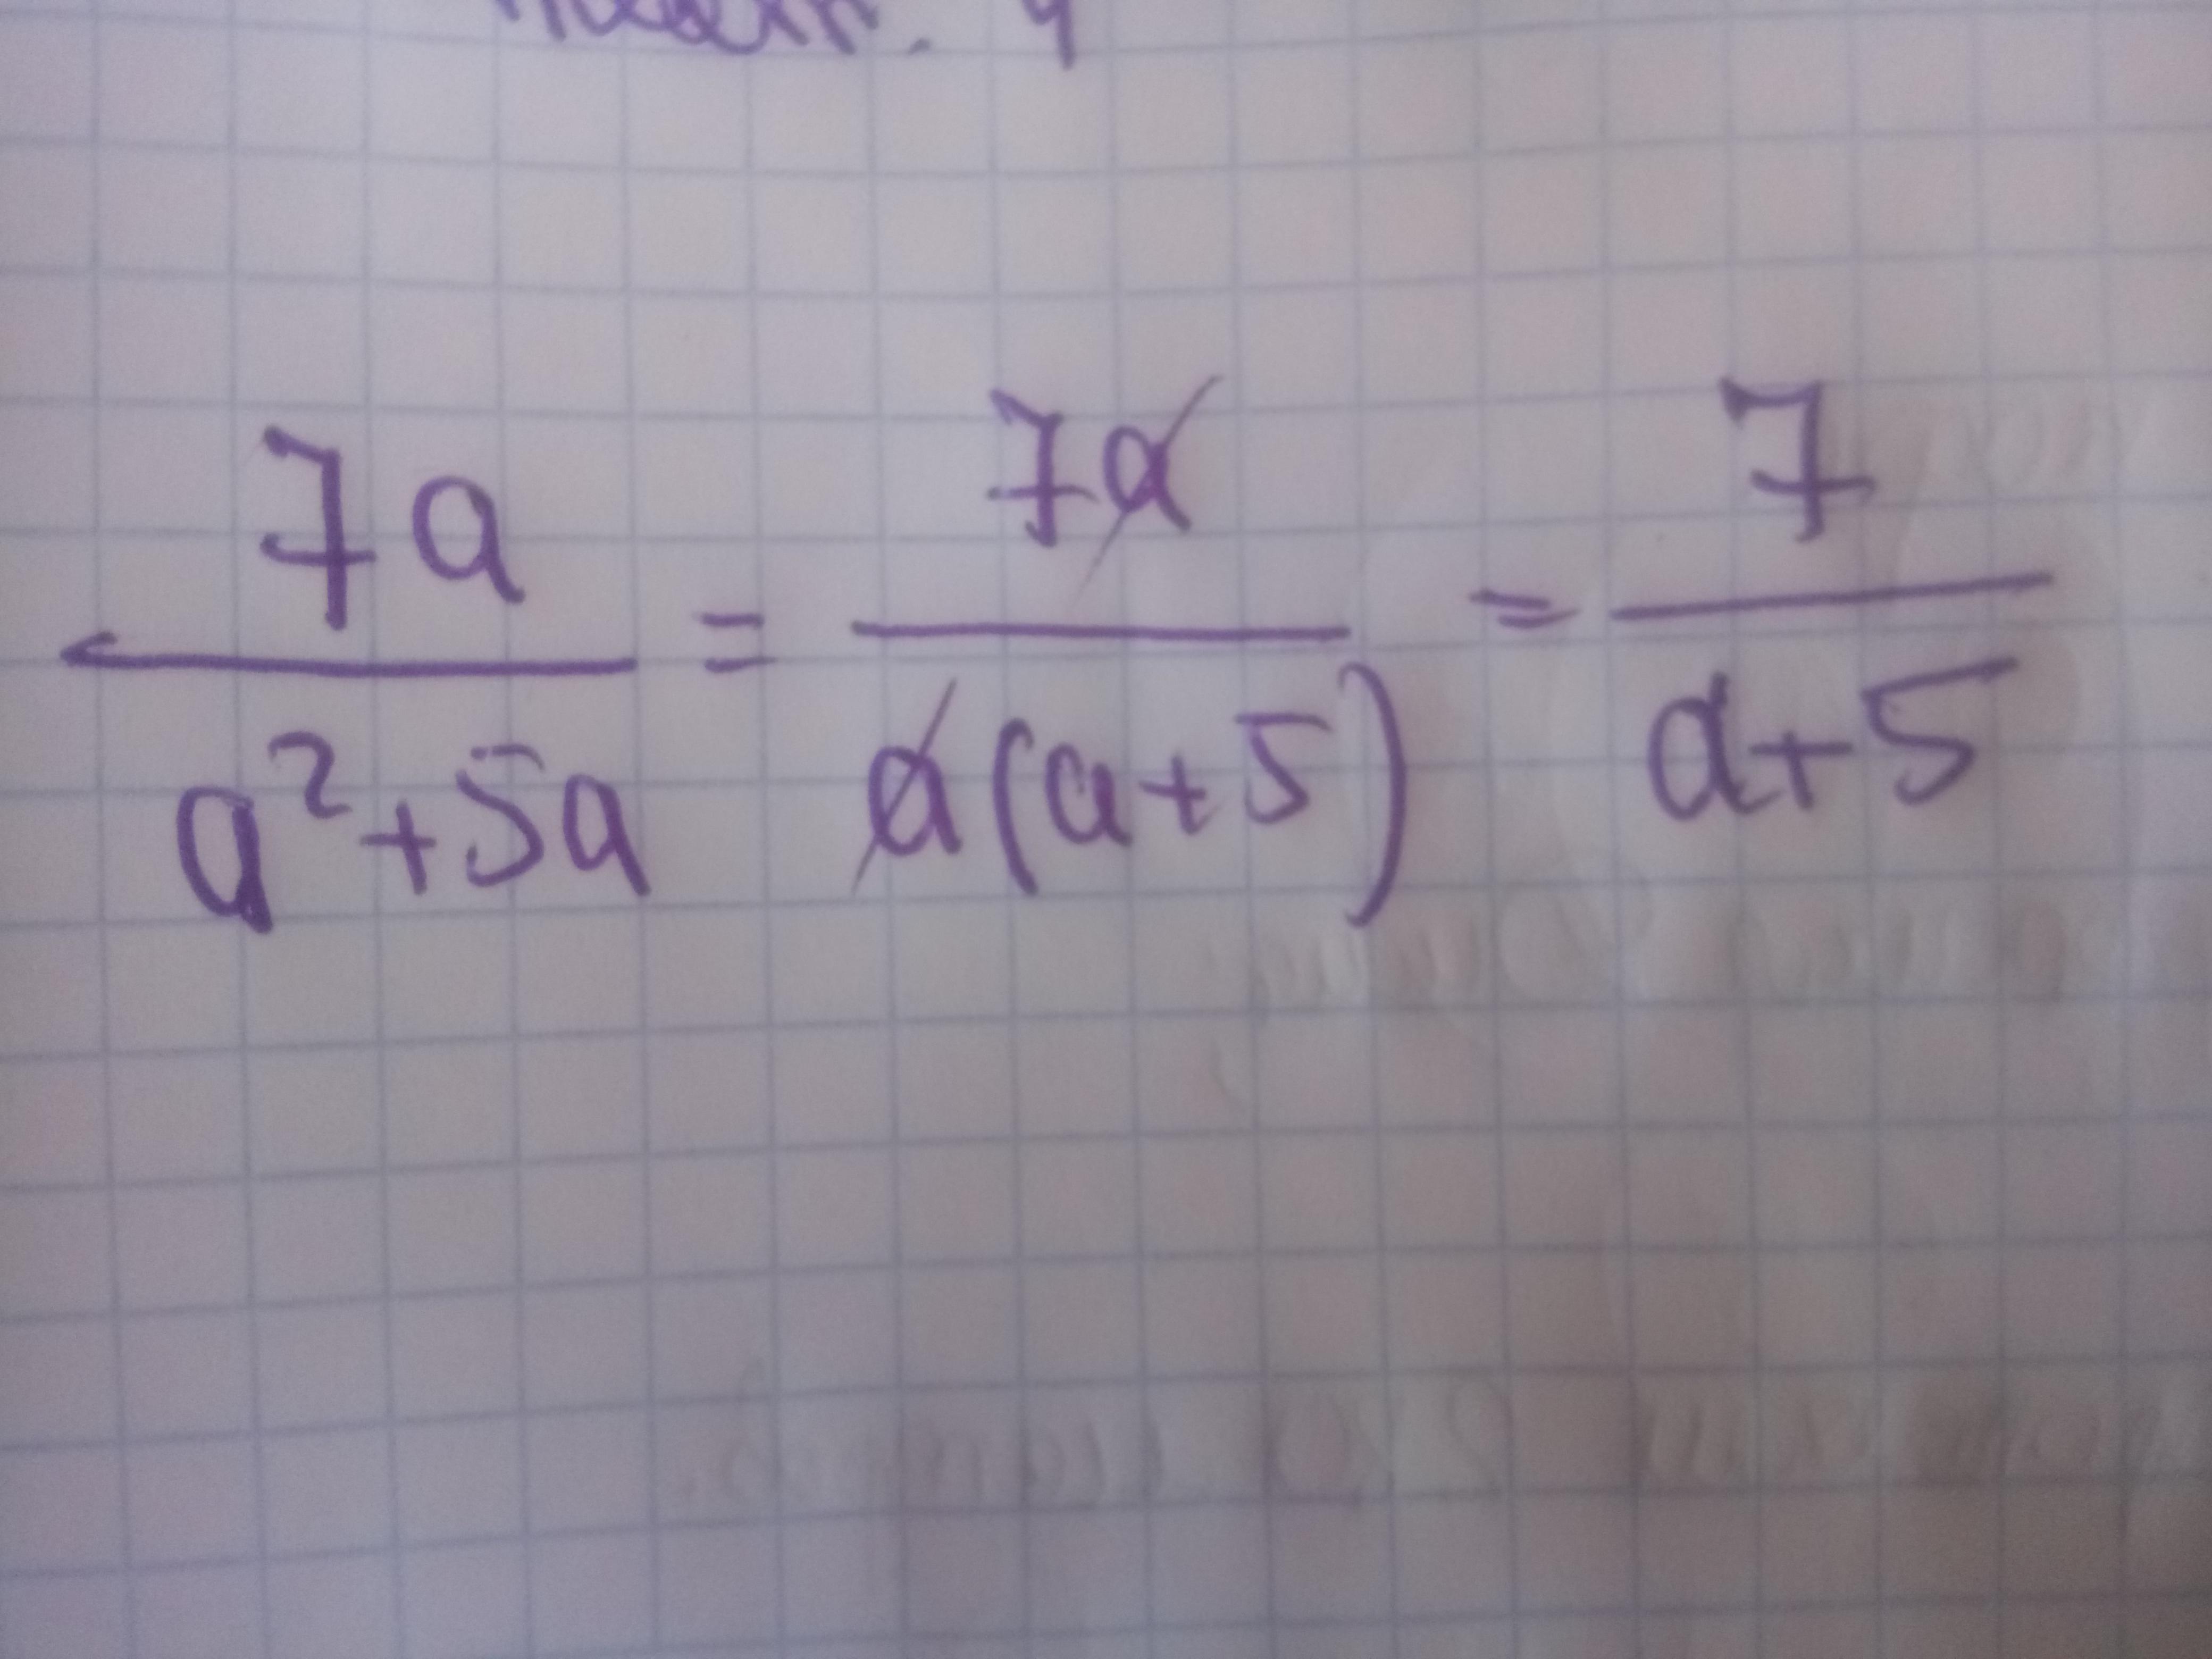 7a/(a²+5a) = 7a/(a(a+5)) = 7/(a+5)